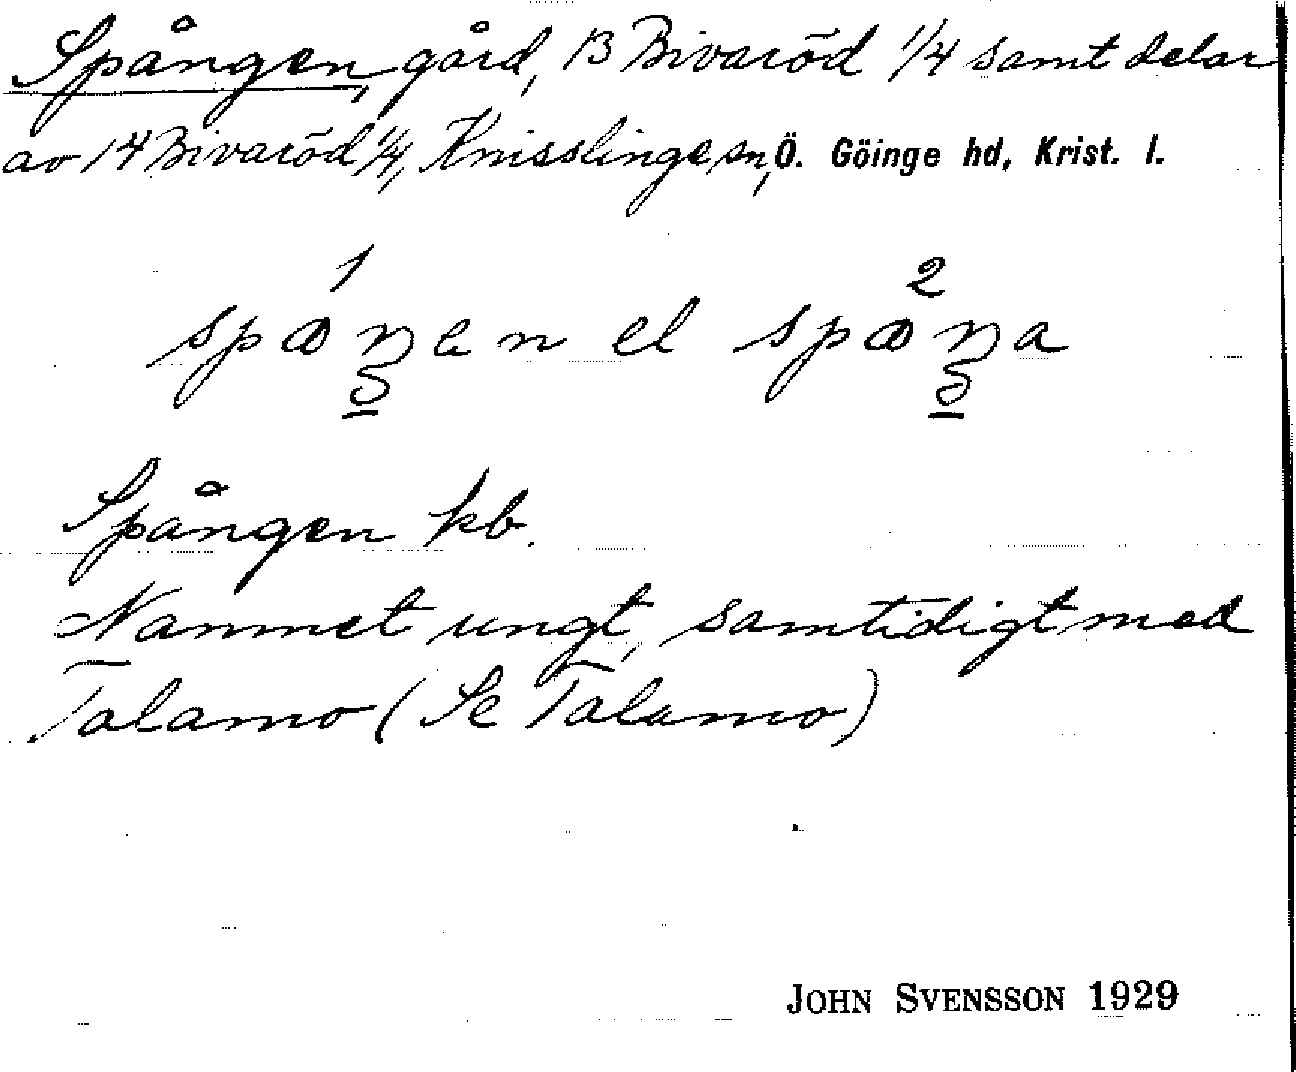 Spången, gård, 13 Bivaröd 1/4 samt delar
av 14 Bivaröd 1/4, Knisslinge sn, Ö. Göinge hd, Krist. l.
1 2
el
Spången kb.
Namnet ungt, samtidigt med
Talamo (Se Talamo)
JOHN SVENSSON 1929